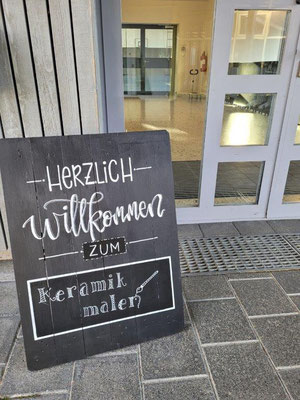 HERZLICH
Willkommen
ZUM
Keramik
malen